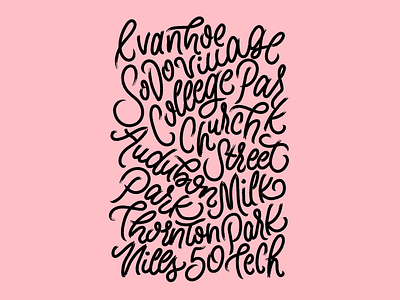 Ivanhoe
SoDo Village
College Park
Church
Street
Audubon
Park Milk
Thornton Park
Mills 50 Tech